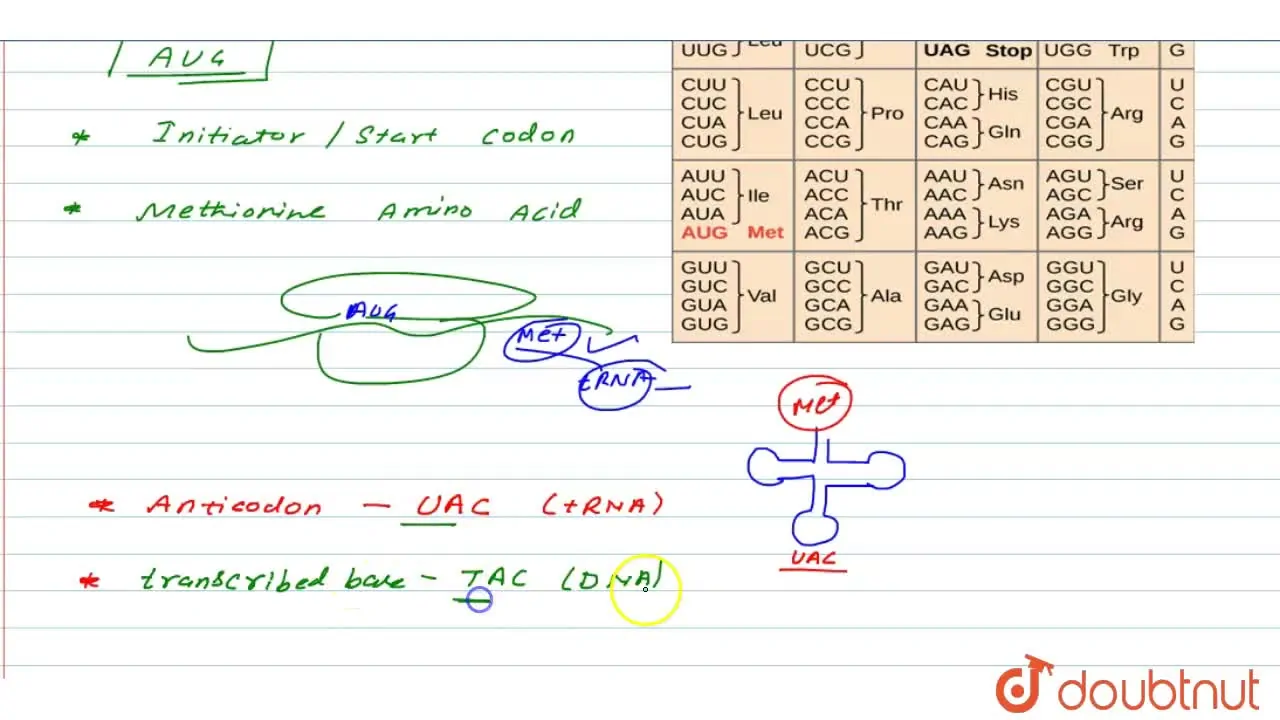 AUG
* Initiator / Start codon
* Methionine Amino Acid
AUG
Met
tRNA
* Anticodon - UAC (tRNA)
* transcribed base - TAC (DNA)
UUG Leu UCG UAG Stop UGG Trp G
CUU CCU CAU CGU U
CUC CCC CAC His CGC C
CUA Leu CCA Pro CAA CGA Arg A
CUG CCG CAG Gln CGG G
AUU ACU AAU AGU U
AUC ACC AAC Asn AGC Ser C
AUA Ile ACA Thr AAA AGA A
AUG Met ACG AAG Lys AGG Arg G
GUU GCU GAU GGU U
GUC GCC GAC Asp GGC C
GUA Val GCA Ala GAA GGA Gly A
GUG GCG GAG Glu GGG G
Met
UAC
doubtnut